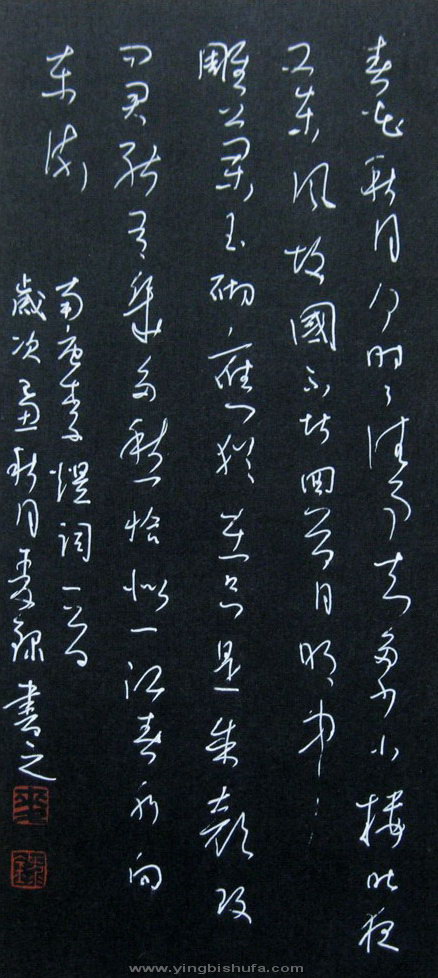 春花秋月何時了往事知多少小樓昨夜
又東風故國不堪回首月明中
雕闌玉砌應猶在只是朱顏改
問君能有幾多愁恰似一江春水向
東流
南唐李煜詞一首
歲次秋月書之
www.yingbishufa.com